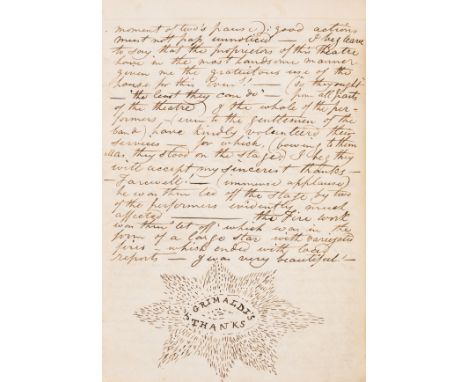 moment of two's pause): good actions
must not pass unnoticed — I beg leave
to say that the proprietors of this theatre
have in the most handsome manner
given me the gratuitous use of the
house for this Even'g! — (
"the least they can do" — from all parts
of the theatre) & the whole of the per-
formers, (even to the gentlemen of the
band) have kindly volunteerd their
services — for which, (bowing to them
as they stood on the stage) I beg they
will accept my sincerest thanks —
— Farewell! — (immense applause)
he was then led off the stage by two
of the performers evidently much
affected — the Fire work
was then 'let off' which was in the
form of a large star with variegated
fires — which ended with loud
reports — & was very beautiful! —
J. GRIMALDI'S
THANKS